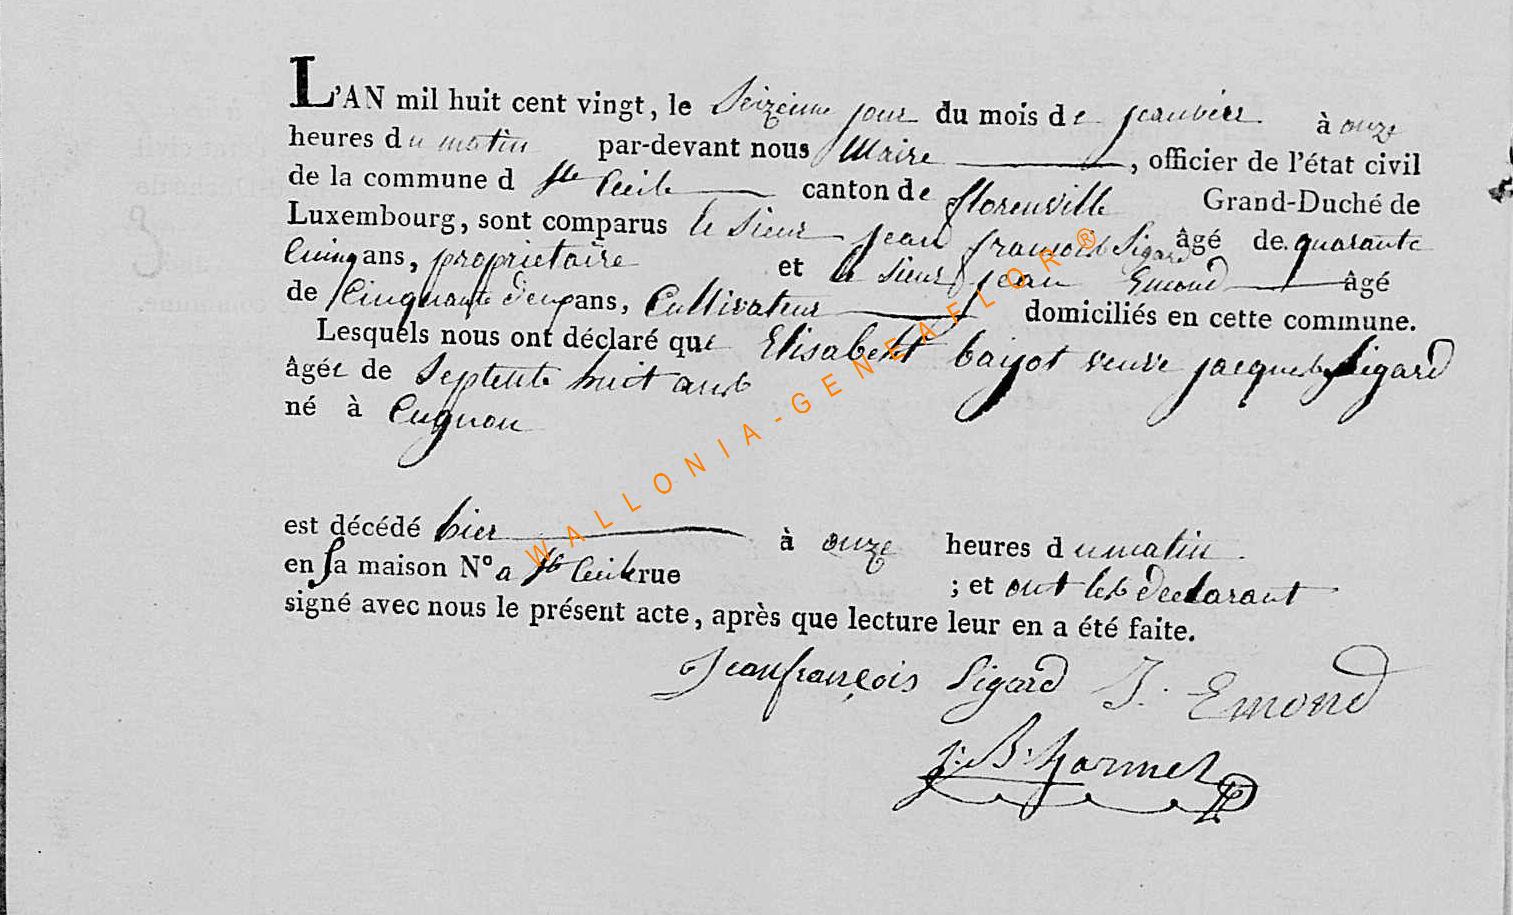 L'AN mil huit cent vingt, le Seizeime jour du mois de jeanvier à onze
heures du matin par-devant nous Maire, officier de l'état civil
de la commune d Ste Cecile canton de florenville Grand-Duché de
Luxembourg, sont comparus le Sieur jean francois Sigard âgé de quarante
Cuinq ans, proprietaire et le Sieur jean Emond âgé
de Cinquante deux ans, Cultivateur domiciliés en cette commune.
Lesquels nous ont déclaré que Elisabeht bayot veuve jacques Sigard
âgée de Septente huit ans
né à Cugnon
est décédé hier à onze heures du matin
en sa maison N° a Ste Cecile rue ; et ont les declarant
signé avec nous le présent acte, après que lecture leur en a été faite.
Jean françois Sigard J. Emond
j. B. hormel
WALLONIA-GENEAFLOR®